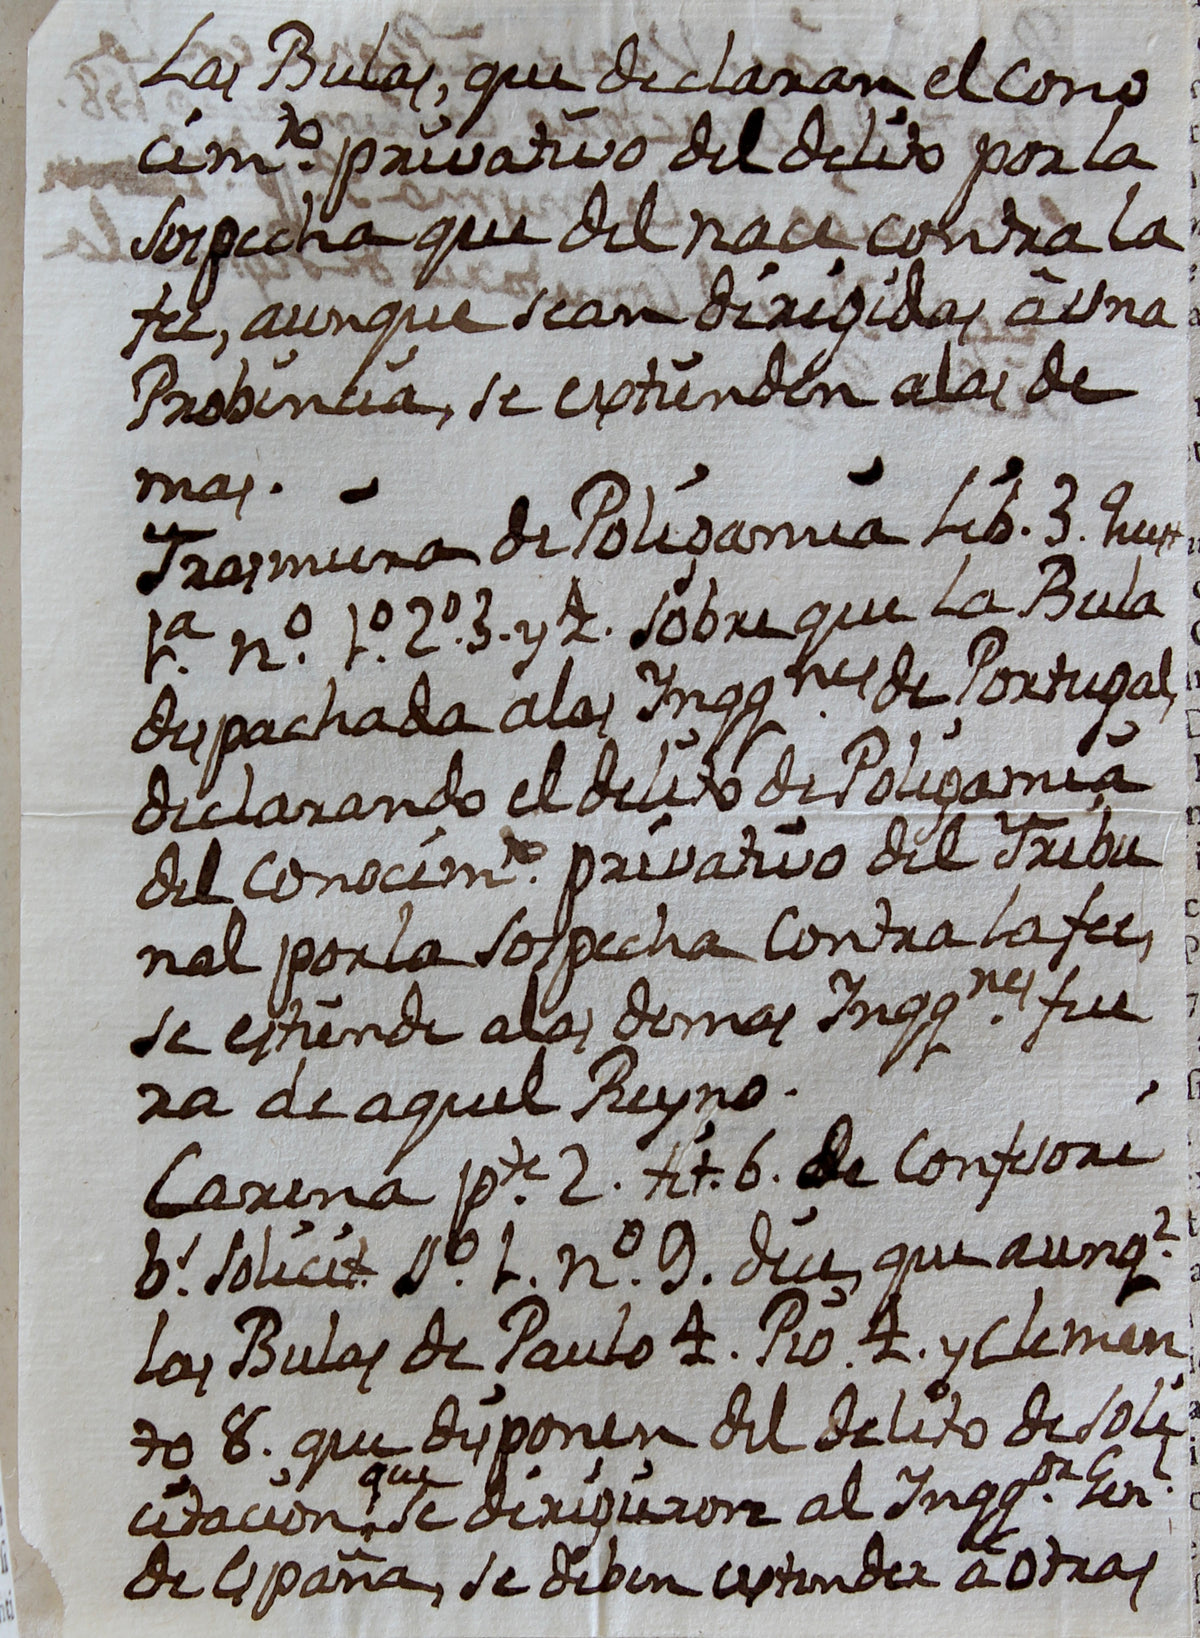 Las Bulas, que declaran el cono
cim.to privativo del delito por la
sospecha que del nace contra la
fee, aunque sean dirigidas â una
Probincia, se extienden a las de
mas.
Trasmiera de Poligamia Lib. 3. Quest
1.a n.o 1.o 2.o 3. y 4. sobre que La Bula
despachada alas Inqq.nes de Portugal,
declarando el delito de Poligamia
del conocim.to privativo del Tribu
nal por la sospecha contra la fee,
se estiende alas demas Inqq.nes fue
ra de aquel Reyno.
Carena p.te 2. tit. 6. de Confesori
b.s Solicit §.o 1. n.o 9. dice, que aunq.e
las Bulas de Paulo 4. Pio. 4. y Clemen
to 8. que disponen del delito de soli
citacion, que se dirigieron al Inqq.or Gen.l
de España, se deben extender â otras